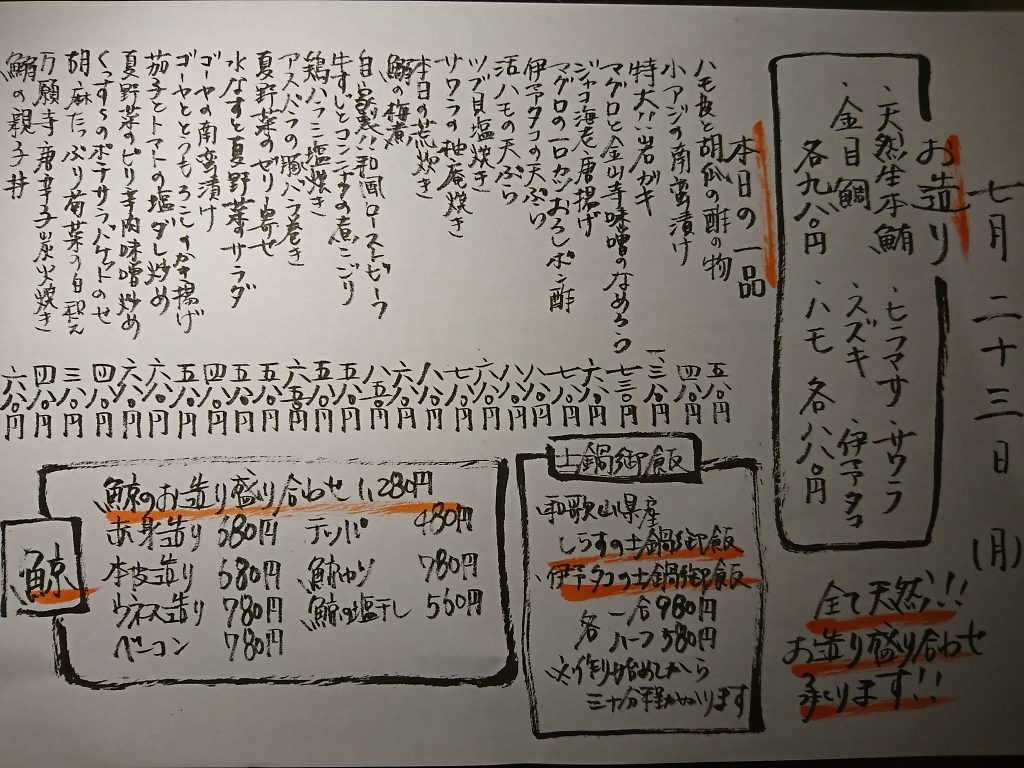 七月二十三日(月)
お造り
・天然生本鮪
・金目鯛
各九八〇円
・ヒラマサ ・サワラ
・スズキ ・伊予タコ
・ハモ 各八八〇円
全て天然!!
お造り盛り合わせ
承ります!!
本日の一品
ハモ皮と胡瓜の酢の物 五八〇円
小アジの南蛮漬け 四八〇円
特大!!岩ガキ 一、三八〇円
マグロと金山寺味噌のなめろう 七三〇円
ジャコ海老唐揚げ 六八〇円
マグロの一口カツおろしポン酢 七八〇円
伊予タコの天ぷら 八八〇円
活ハモの天ぷら 八八〇円
ツブ貝塩焼き 六八〇円
サワラの柚庵焼き 七八〇円
本日の荒炊き 八八〇円
鮪の梅煮 六八〇円
自家製!!和風ローストビーフ 八五〇円
牛すじとコンニャクの煮こごり 五八〇円
鶏ハラミ塩焼き 五八〇円
アスパラの豚バラ巻き 六五〇円
夏野菜のゼリー寄せ 五八〇円
水なすと夏野菜のサラダ 五八〇円
ゴーヤの南蛮漬け 四八〇円
ゴーヤととうもろこしのかき揚げ 五八〇円
茄子とトマトの塩ダレ炒め 六八〇円
夏野菜のピリ辛肉味噌炒め 六八〇円
くんすらのポテサラバケットのせ 四八〇円
胡麻たっぷり菊菜の白和え 三八〇円
万願寺唐辛子炭火焼き 四八〇円
鮪の親子丼 六八〇円
土鍋御飯
・和歌山県産
しらすの土鍋御飯
・伊予タコの土鍋御飯
各 一合980円
ハーフ580円
※作り始めてから
三十分程かかります
鯨
鯨のお造り盛り合わせ 1,280円
赤身造り 680円
本皮造り 680円
ウネス造り 780円
ベーコン 780円
テッパ 480円
鯨カツ 780円
鯨の塩干し 560円